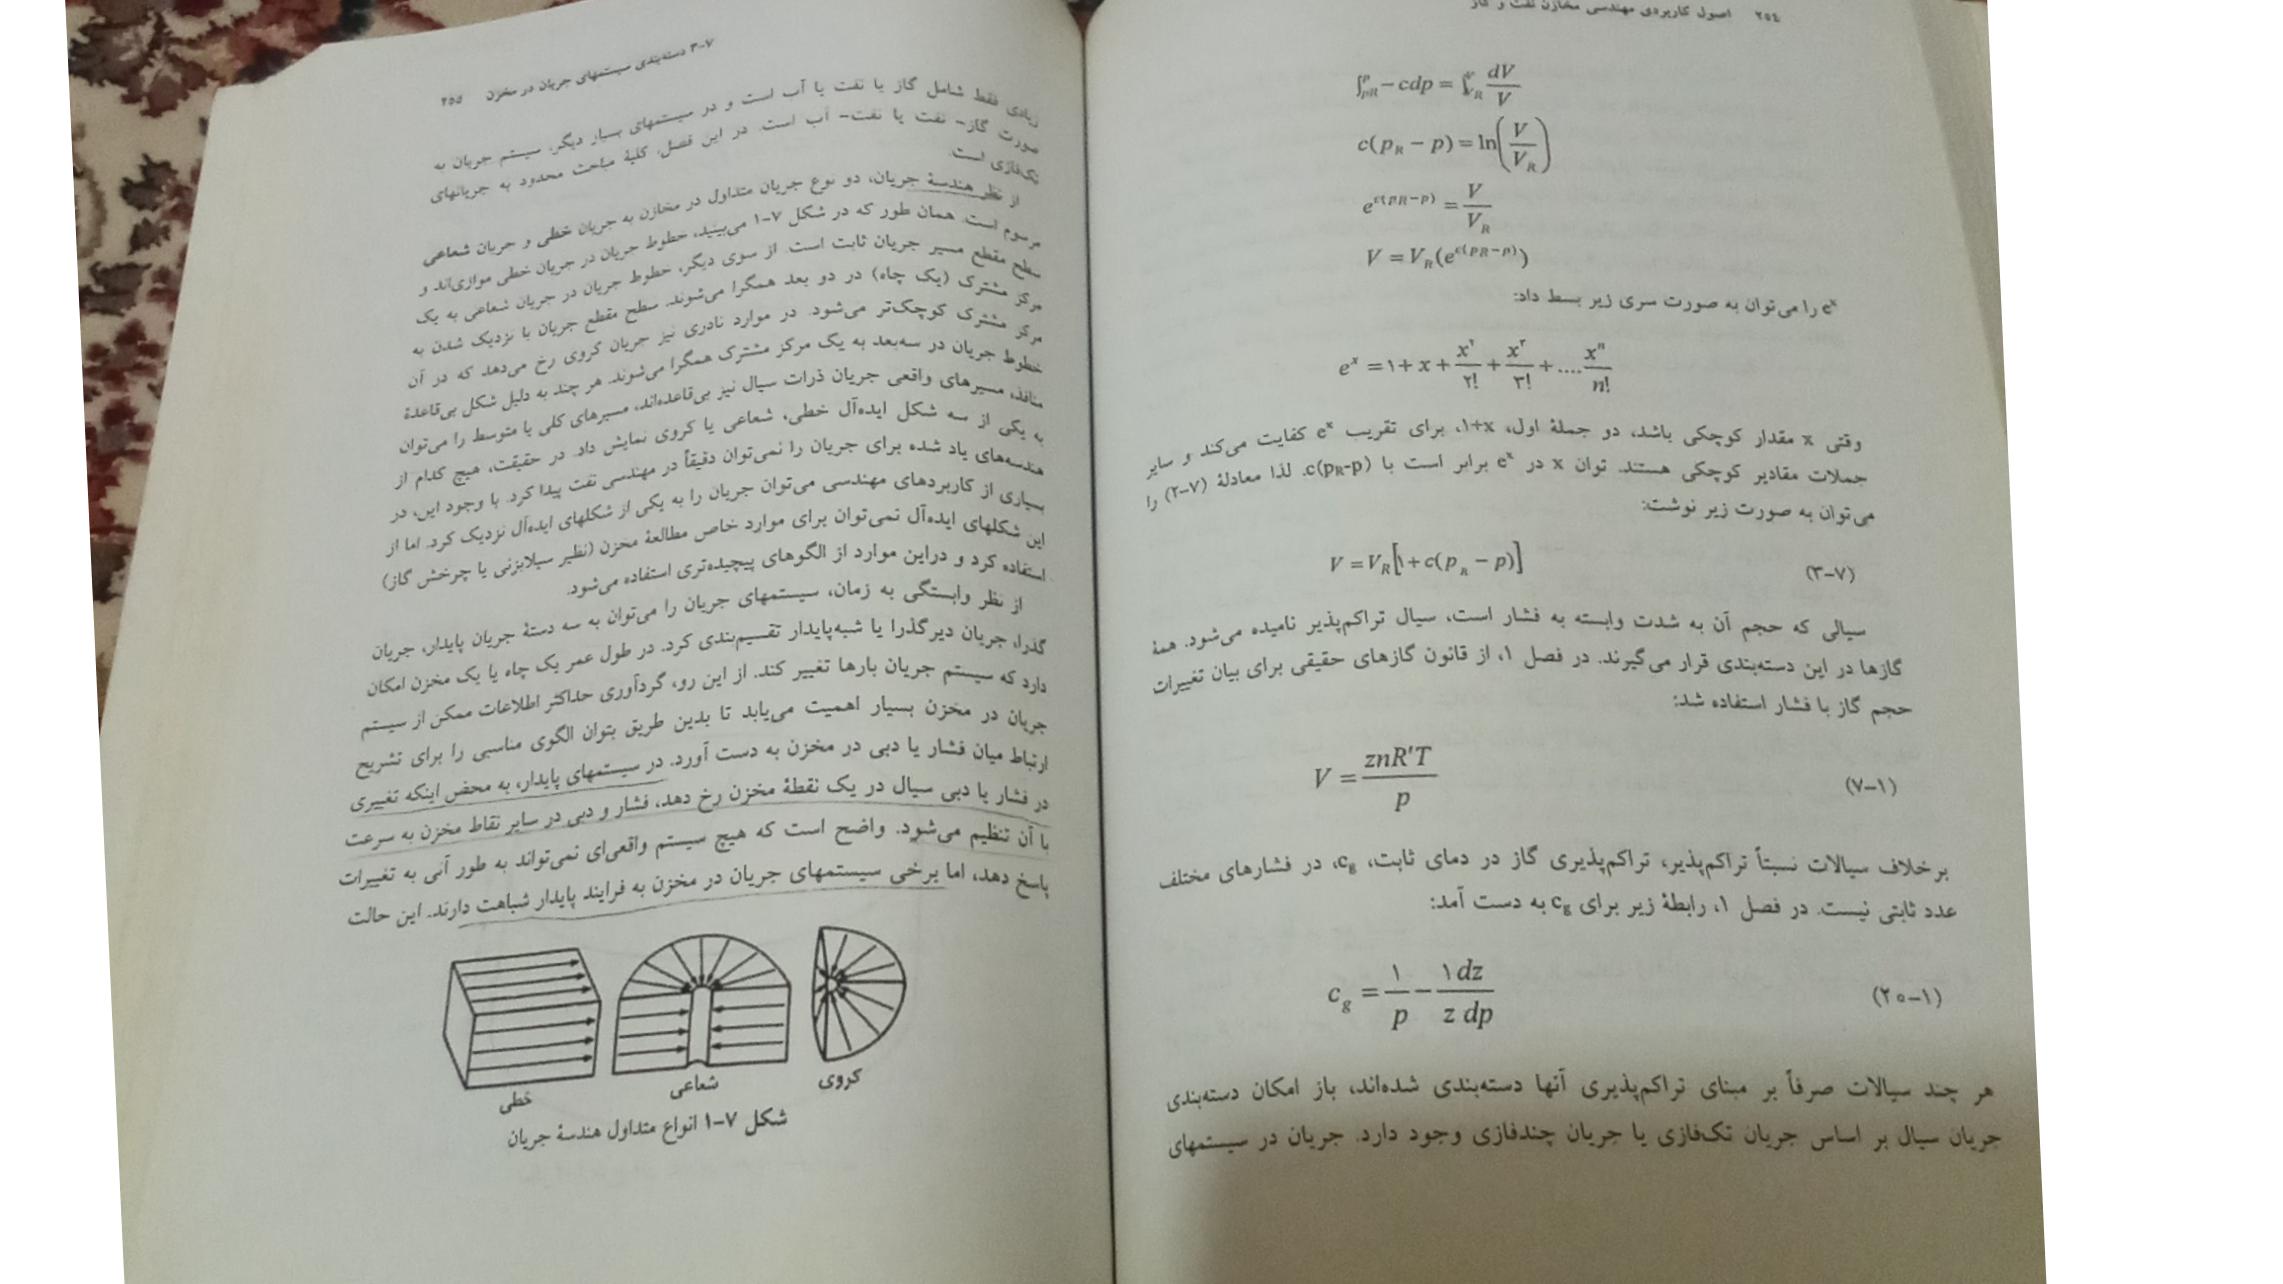 ۲۵٤ اصول کاربردی مهندسی مخازن نفت و گاز
∫_{pR}^{p} − cdp = ∫_{V_R}^{V} dV/V
c(p_R − p) = ln(V/V_R)
e^{c(p_R−p)} = V/V_R
V = V_R(e^{c(p_R−p)})
e^x را می‌توان به صورت سری زیر بسط داد:
e^x = ۱ + x + x^۲/۲! + x^۳/۳! + .... x^n/n!
وقتی x مقدار کوچکی باشد، دو جملهٔ اول، ۱+x، برای تقریب e^x کفایت می‌کند و سایر
جملات مقادیر کوچکی هستند. توان x در e^x برابر است با c(p_R-p). لذا معادلهٔ (۷-۲) را
می‌توان به صورت زیر نوشت:
V = V_R[۱ + c(p_R − p)] (۷-۳)
سیالی که حجم آن به شدت وابسته به فشار است، سیال تراکم‌پذیر نامیده می‌شود. همهٔ
گازها در این دسته‌بندی قرار می‌گیرند. در فصل ۱، از قانون گازهای حقیقی برای بیان تغییرات
حجم گاز با فشار استفاده شد:
V = znR'T/p (۱-۷)
برخلاف سیالات نسبتاً تراکم‌پذیر، تراکم‌پذیری گاز در دمای ثابت، c_g، در فشارهای مختلف
عدد ثابتی نیست. در فصل ۱، رابطهٔ زیر برای c_g به دست آمد:
c_g = ۱/p − ۱/z dz/dp (۱-۲۰)
هر چند سیالات صرفاً بر مبنای تراکم‌پذیری آنها دسته‌بندی شده‌اند، باز امکان دسته‌بندی
جریان سیال بر اساس جریان تک‌فازی یا جریان چندفازی وجود دارد. جریان در سیستمهای
۷-۳ دسته‌بندی سیستمهای جریان در مخزن ۲۵۵
زیادی فقط شامل گاز یا نفت یا آب است و در سیستمهای بسیار دیگر، سیستم جریان به
صورت گاز- نفت یا نفت- آب است. در این فصل، کلیهٔ مباحث محدود به جریانهای
تک‌فازی است.
از نظر هندسهٔ جریان، دو نوع جریان متداول در مخازن به جریان خطی و جریان شعاعی
مرسوم است. همان طور که در شکل ۷-۱ می‌بینید، خطوط جریان در جریان خطی موازی‌اند و
سطح مقطع مسیر جریان ثابت است. از سوی دیگر، خطوط جریان در جریان شعاعی به یک
مرکز مشترک (یک چاه) در دو بعد همگرا می‌شوند. سطح مقطع جریان با نزدیک شدن به
مرکز مشترک کوچک‌تر می‌شود. در موارد نادری نیز جریان کروی رخ می‌دهد که در آن
خطوط جریان در سه‌بعد به یک مرکز مشترک همگرا می‌شوند. هر چند به دلیل شکل بی‌قاعدهٔ
منافذ، مسیرهای واقعی جریان ذرات سیال نیز بی‌قاعده‌اند، مسیرهای کلی یا متوسط را می‌توان
به یکی از سه شکل ایده‌آل خطی، شعاعی یا کروی نمایش داد. در حقیقت، هیچ کدام از
هندسه‌های یاد شده برای جریان را نمی‌توان دقیقاً در مهندسی نفت پیدا کرد. با وجود این، در
بسیاری از کاربردهای مهندسی می‌توان جریان را به یکی از شکلهای ایده‌آل نزدیک کرد. اما از
این شکلهای ایده‌آل نمی‌توان برای موارد خاص مطالعهٔ مخزن (نظیر سیلابزنی یا چرخش گاز)
استفاده کرد و دراین موارد از الگوهای پیچیده‌تری استفاده می‌شود.
از نظر وابستگی به زمان، سیستمهای جریان را می‌توان به سه دستهٔ جریان پایدار، جریان
گذرا، جریان دیرگذرا یا شبه‌پایدار تقسیم‌بندی کرد. در طول عمر یک چاه یا یک مخزن امکان
دارد که سیستم جریان بارها تغییر کند. از این رو، گردآوری حداکثر اطلاعات ممکن از سیستم
جریان در مخزن بسیار اهمیت می‌یابد تا بدین طریق بتوان الگوی مناسبی را برای تشریح
ارتباط میان فشار یا دبی در مخزن به دست آورد. در سیستمهای پایدار، به محض اینکه تغییری
در فشار یا دبی سیال در یک نقطهٔ مخزن رخ دهد، فشار و دبی در سایر نقاط مخزن به سرعت
با آن تنظیم می‌شود. واضح است که هیچ سیستم واقعی‌ای نمی‌تواند به طور آنی به تغییرات
پاسخ دهد، اما برخی سیستمهای جریان در مخزن به فرایند پایدار شباهت دارند. این حالت
کروی
شعاعی
خطی
شکل ۷-۱ انواع متداول هندسهٔ جریان